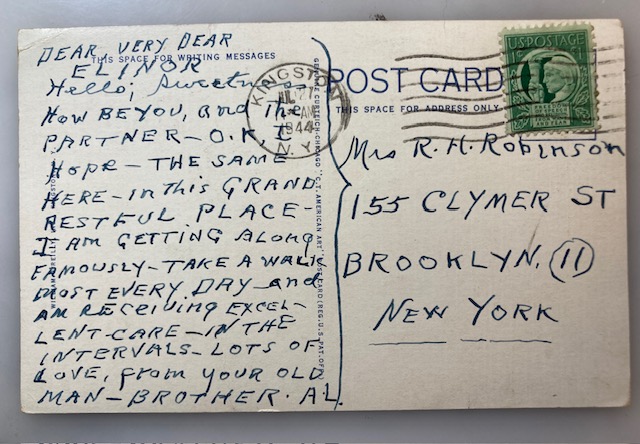 DEAR, VERY DEAR
THIS SPACE FOR WRITING MESSAGES
ELINOR
Hello; Sweetn
HOW BE YOU, and The
PARTNER - O.K, I
HOPE - THE SAME
HERE - IN This GRAND
RESTFUL PLACE -
I AM GETTING ALONG
FAMOUSLY - TAKE A WALK
MOST EVERY DAY - and
AM RECEIVING EXCEL-
LENT-CARE - IN THE
INTERVALS - LOTS OF
LOVE, from YOUR OLD
MAN - BROTHER. AL.
KINGSTON
1944
N.Y.
U.S. POSTAGE
POST CARD
THIS SPACE FOR ADDRESS ONLY
Mrs R. H. Robinson
155 CLYMER ST
BROOKLYN. (11)
NEW YORK